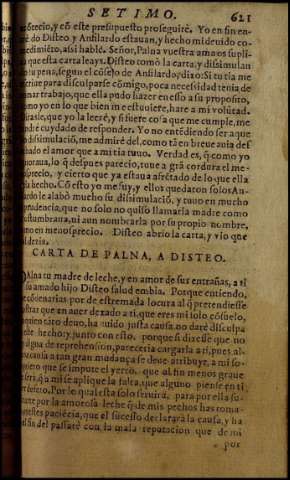 SETIMO. 621
precio, y cõ este presupuesto proseguirè. Yo en fin en
de do Disteo y Anfilardo estauan, y hecho mi deuido co
medimiẽto, assi hablè. Señor, Palna vuestra ama os supli
ca que esta carta leays. Disteo tomò la carta, y dissimulan
su pena, segun el cõsejo de Anfilardo, dixo: Si tu a me
para dissculparse cõmigo, poca necessidad tenia de
mar trabajo, que ella pudo hazer en esso a su proposito,
como yo en lo que bien me estuuiere, hare a mi volũtad.
que yo la leerè, y si fuere cosa que me cumple, me
cuydado de responder. Yo no entẽdiendo ser aque
dissimulació, me admirè del, como tã en breue auia des
el amor que a mi tia tuuo. Verdad es, q̃ como yo
lo q̃ despues pareció, tuue a grã cordura el me
precio, y cierto que ya estaua afrẽtado de lo que ella
hecho. Cõ esto yo me fuy, y ellos quedaron solos An
le alabó mucho su dissimulació, y tuuo en mucho
prudẽcia, que no solo no quiso llamarla madre como
tumbraua, ni aun nombrarla por su propio nombre,
en menosprecio. Disteo abrio la carta, y vio que
dezia.
CARTA DE PALNA, A DISTEO.
PAlna tu madre de leche, y en amor de sus entrañas, a ti
su amado hijo Disteo salud embia. Porque entiendo,
por de estremada locura al q̃ pretendiesse
que en auer dexado a ti, que eres mi solo cõsuelo,
ha auido justa causa, no darè disculpa
hecho y junto con esto, porque si dixesse que no
alguna de reprehension, pareceria cargarla a ti, pues al-
causa a tan gran mudança se deue atribuyr, a mi so-
quiero que se impute el yerro, que al fin menos grue
serà, q̃ a mi se aplique la falta, que alguno piense en ti
defeto. Por lo qual esta solo seruirà, para por ella so-
por la amorosa leche q̃ de mis pechos has toma-
paciẽcia, que el sucesso declararà la causa, y ha
del passatè con la mala reputacion que de mi
por